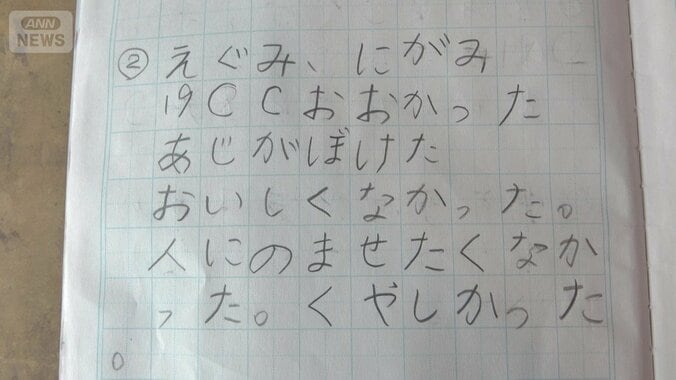 ANN
NEWS
②えぐみ、にがみ
19CCおおかった
あじがぼけた
おいしくなかった。
人にのませたくなか
った。くやしかった
0